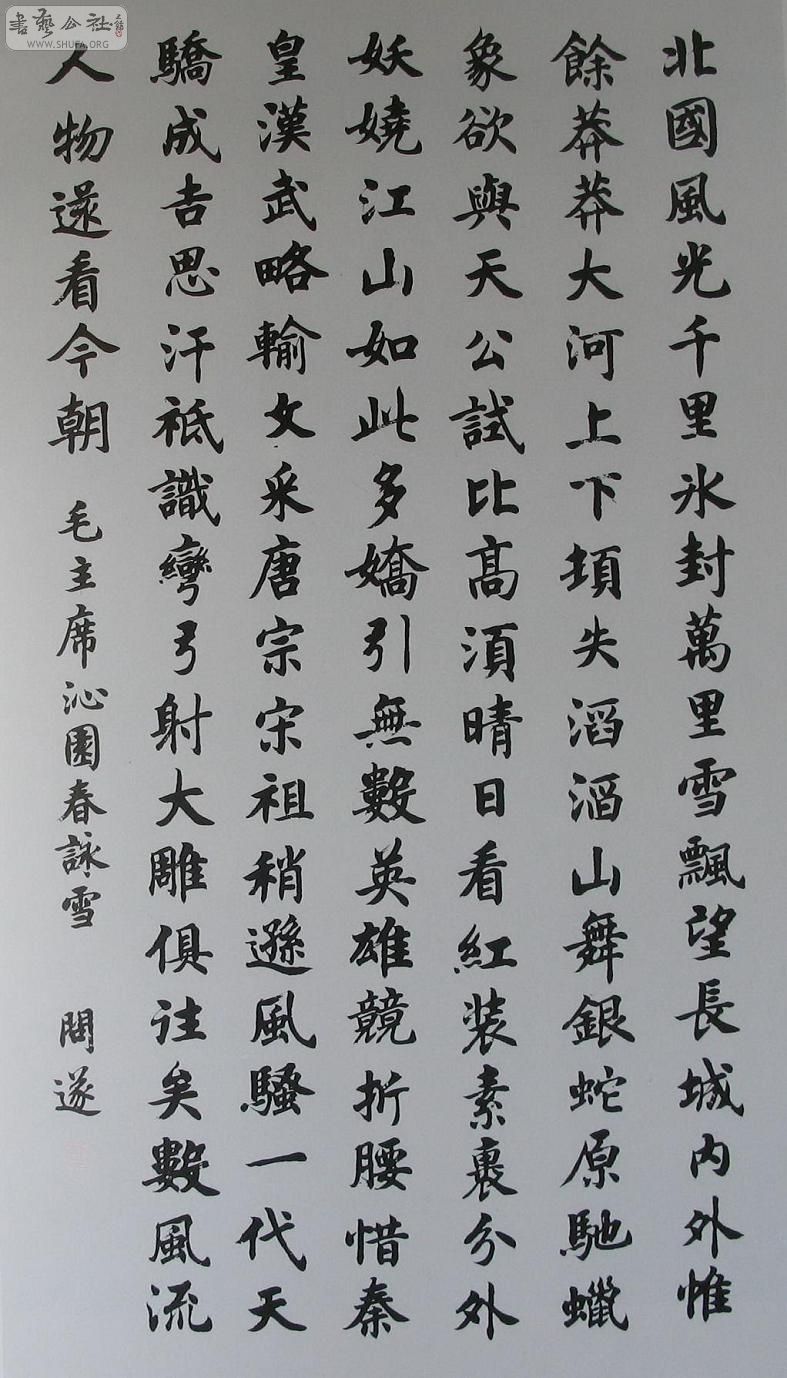 書藝公社
WWW.SHUFA.ORG
北國風光千里氷封萬里雪飄望長城内外惟
餘莽莽大河上下頓失滔滔山舞銀蛇原馳蠟
象欲與天公試比高湏晴日看紅装素裹分外
妖嬈江山如此多嬌引無數英雄競折腰惜秦
皇漢武略輸文采唐宗宋祖稍遜風騷一代天
驕成吉思汗祗識彎弓射大雕俱往矣數風流
人物還看今朝 毛主席沁園春詠雪 問遂